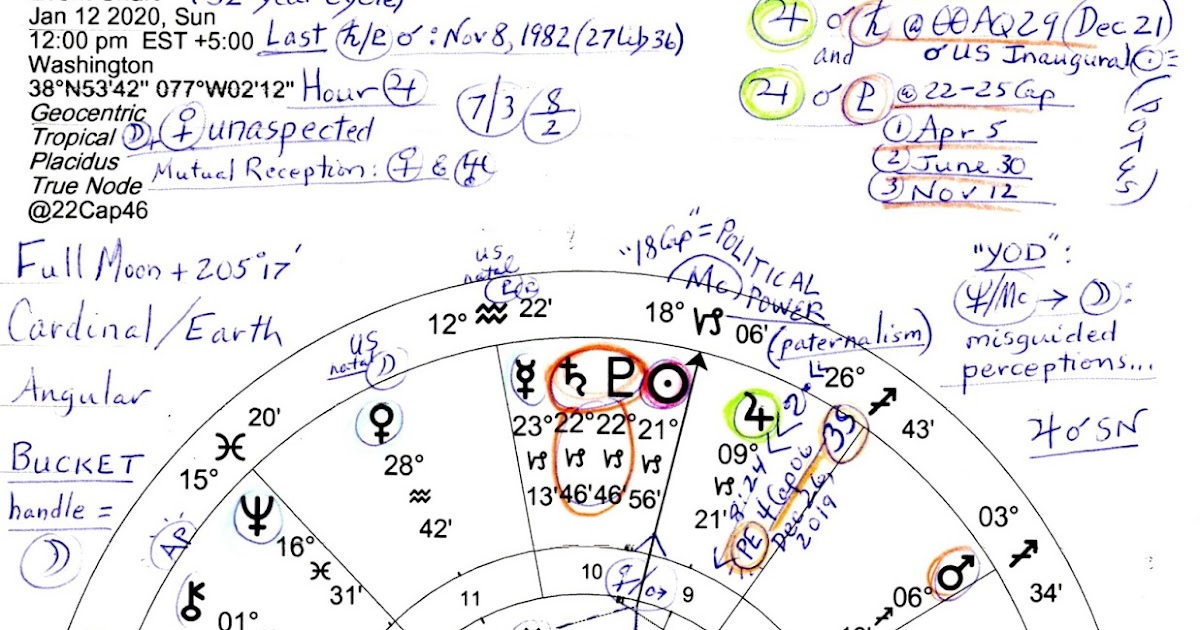 (32 year cycle)
Jan 12 2020, Sun
12:00 pm EST +5:00
Last ♄/♇ ☌ : Nov 8, 1982 (27 Lib 36)
Washington
38°N53'42" 077°W02'12"
Hour ♃
7/3 8/2
Geocentric
Tropical
☽, ♀ unaspected
Placidus
Mutual Reception: ♀ & ♅
True Node
@22Cap46
♃ ☌ ♄ @ 00 AQ 29 (Dec 21)
and ☌ US Inaugural ☉ =
♃ ☌ ♇ @ 22-25 Cap
① Apr 5
② June 30
③ Nov 12
Full Moon + 205°17'
Cardinal/Earth
Angular
BUCKET
handle =
☽
US
natal
☽
US
natal
"18 Cap" = POLITICAL
POWER
(paternalism)
Mc
"YOD":
♆/Mc → ☽:
misguided
perceptions...
♃ ☌ SN
12° ♒ 22'
18° ♑ 06'
26° ♐ 43'
03° ♐ 34'
20'
♓
15°
AP
☿ ♄ ♇ ☉
23° 22° 22° 21°
♑ ♑ ♑ ♑
13' 46' 46' 56'
♃
09°
♑
21'
PE 4 Cap 06
Dec 26,
2019
8:24
3S
♀
28°
♒
42'
♆
16°
♓
31'
⚷
01°
♂
06°
♐
11
10
9